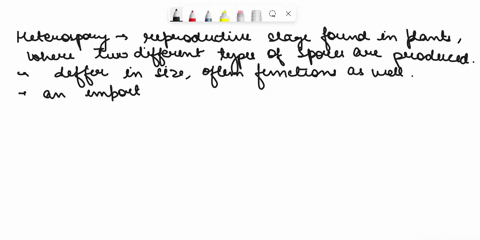 Heterospory → reproductive stage found in plants,
where two different type of spores are produced.
→ deffer in size, often functions as well.
→ an import